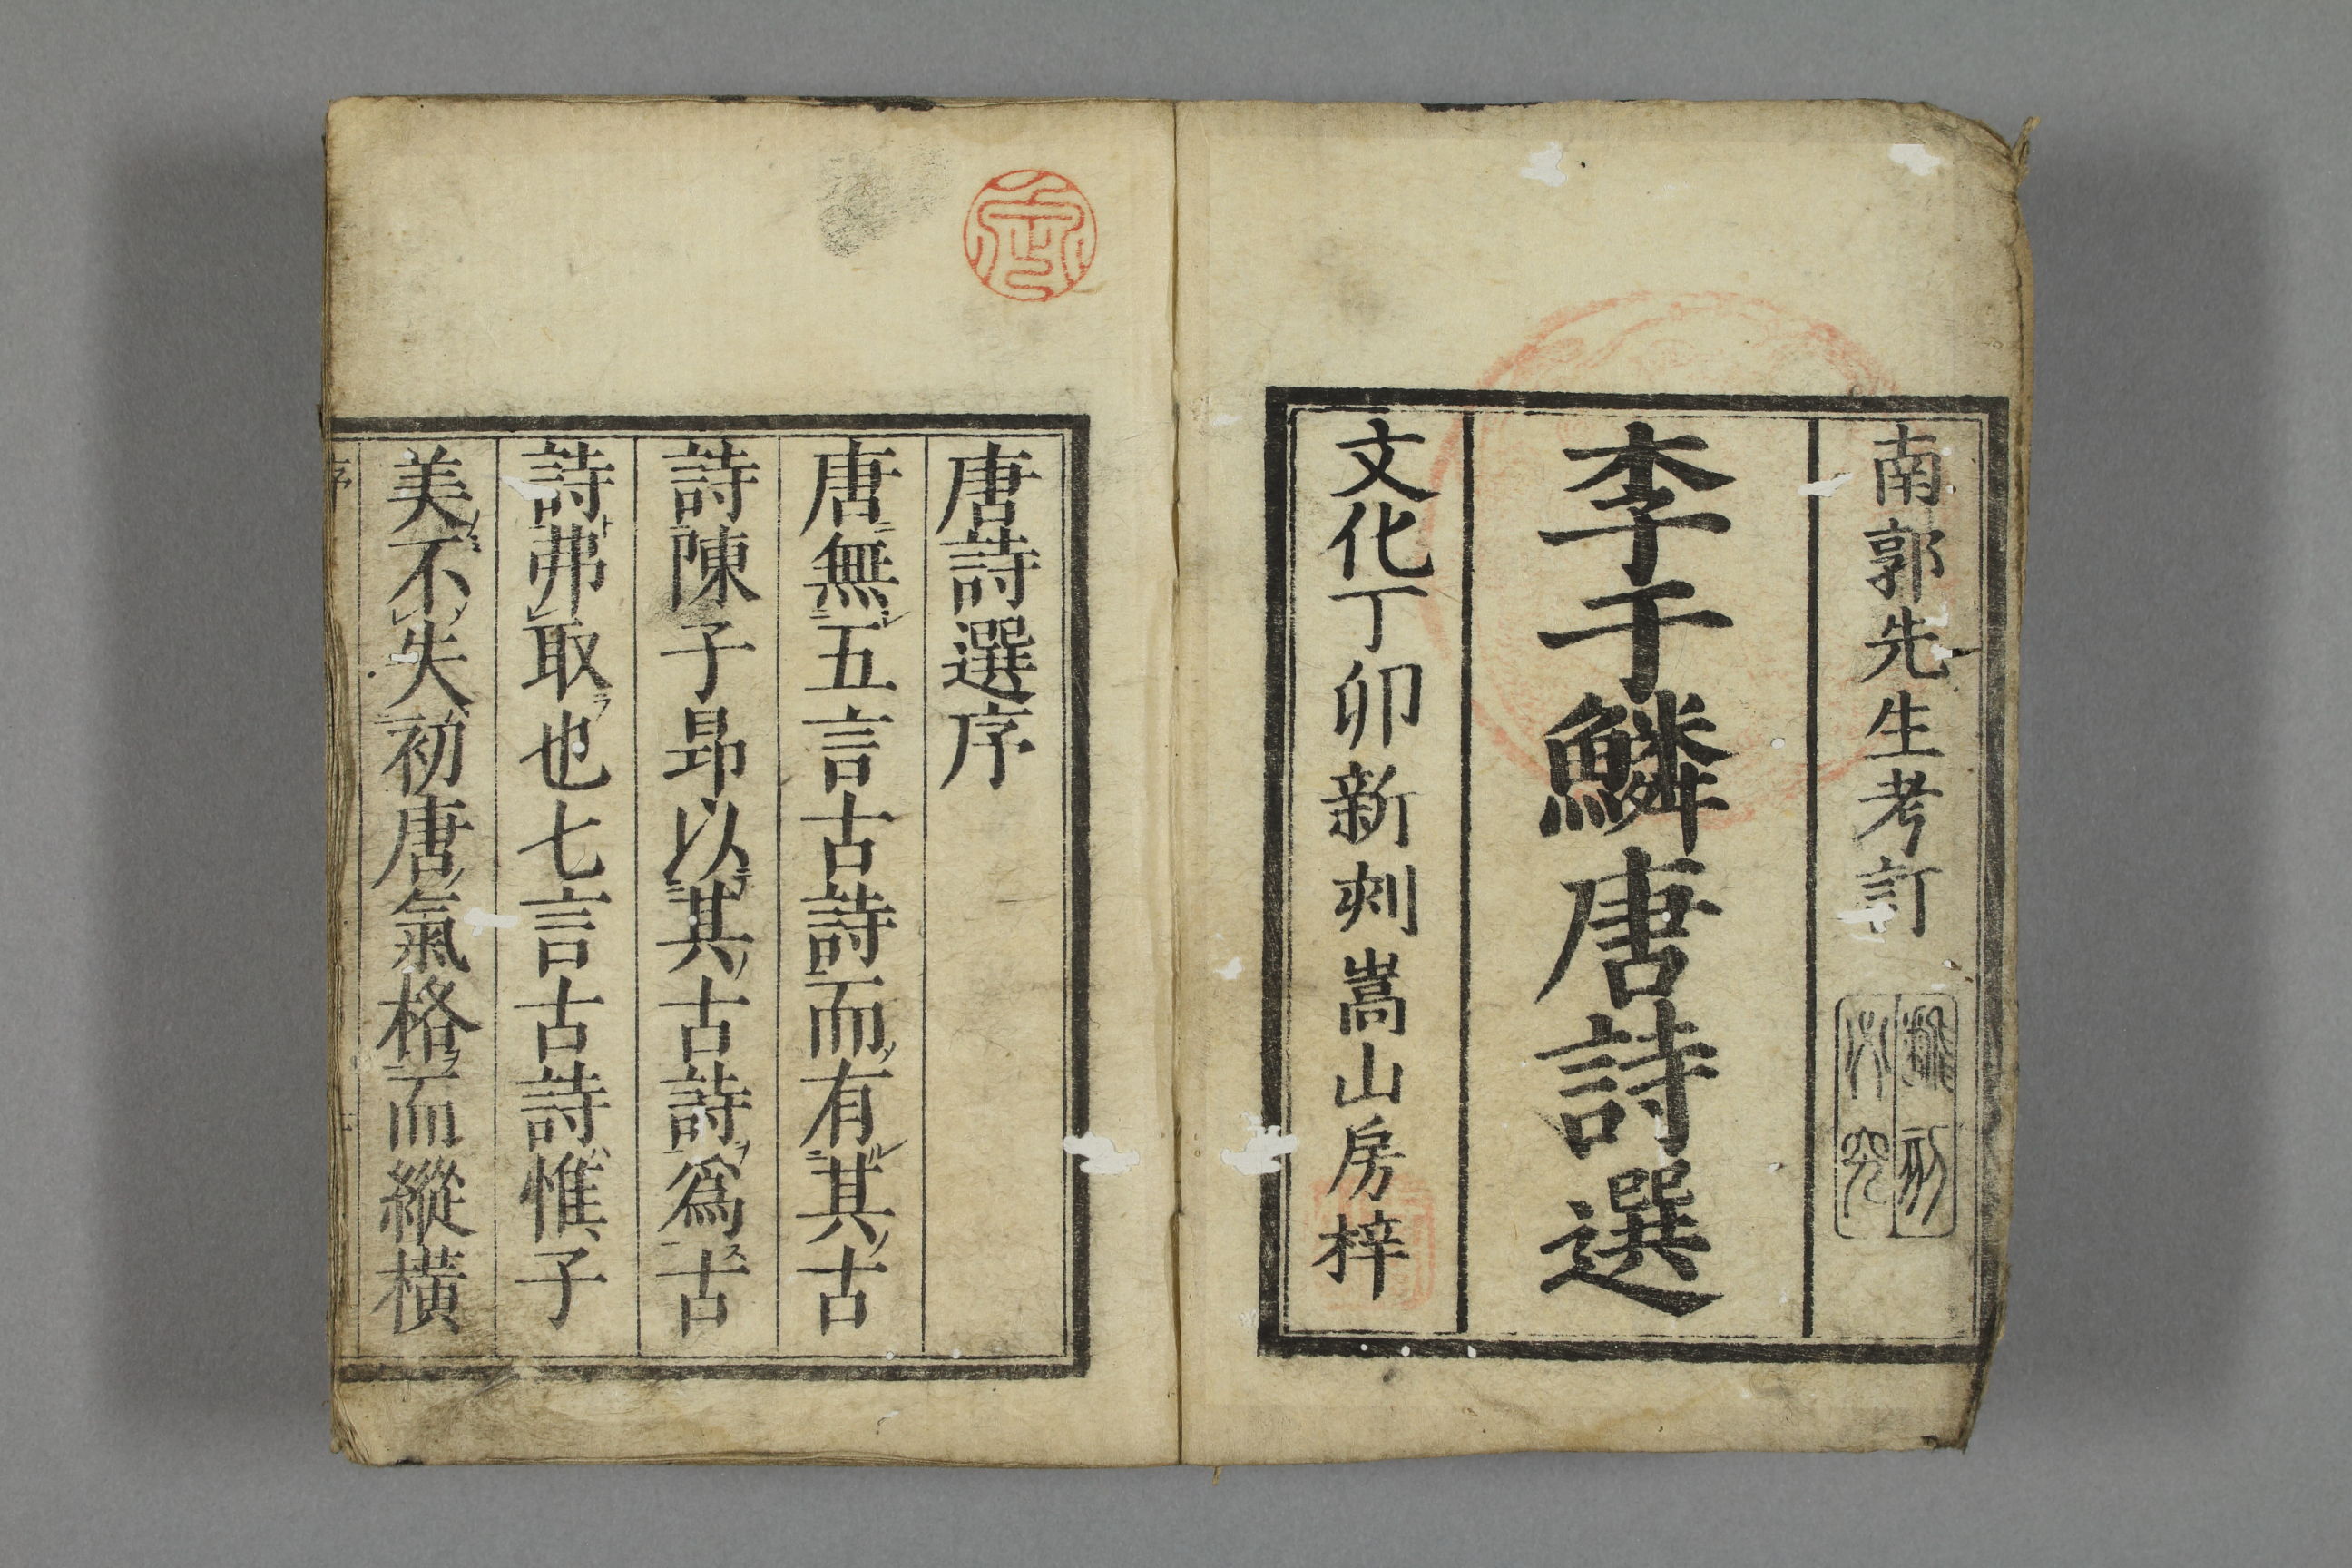 南郭先生考訂
李于鱗唐詩選
文化丁卯新刻嵩山房梓
唐詩選序
唐無五言古詩而有其古
詩陳子昻以其古詩爲古
詩弗取也七言古詩惟子
美不失初唐氣格而縱橫
序